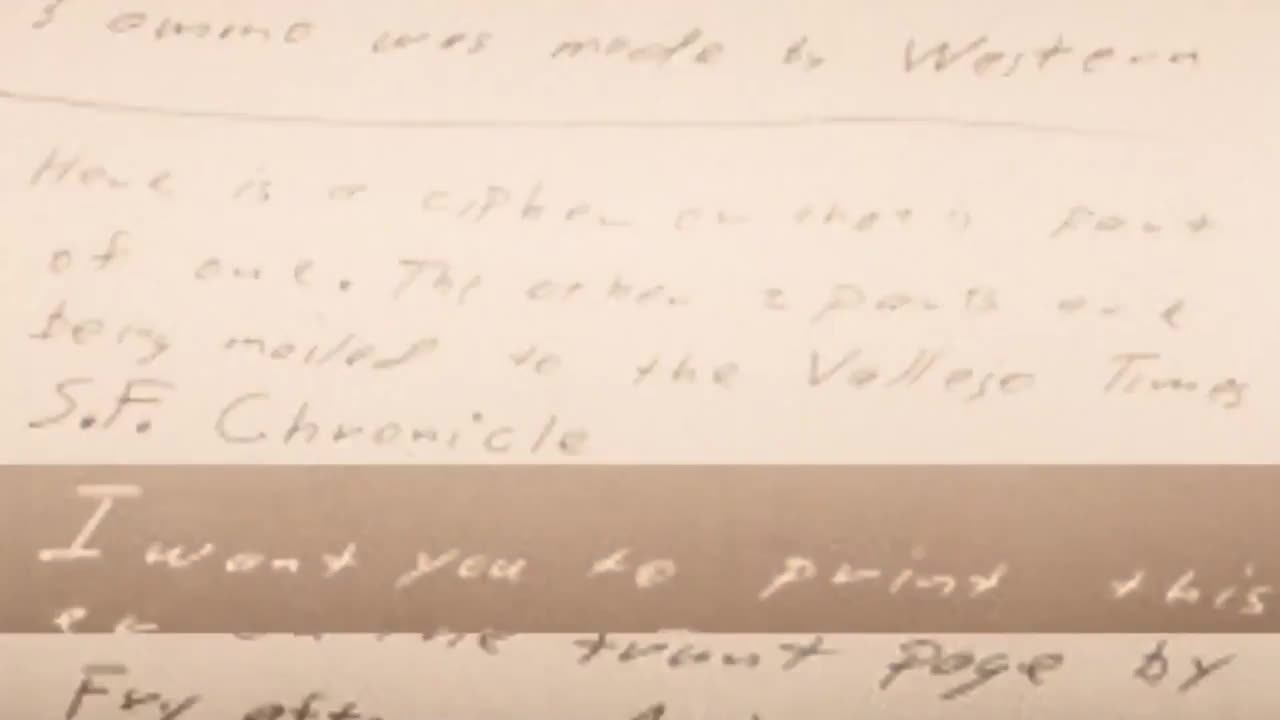 3 ammo was made by Western
Here is a cipher or that is part
of one. The other 2 parts are
being mailed to the Vallejo Times
S.F. Chronicle
I want you to print this
trunt page by
Fry